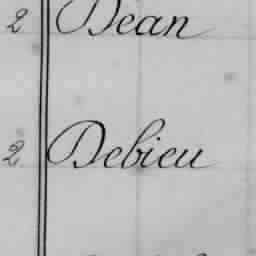 2 Dean
2 Debieu